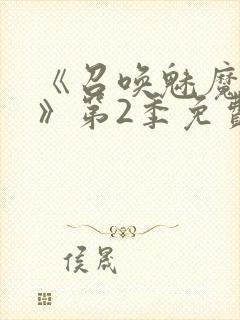 《召唤魅魔
》第2季免费
侯晟